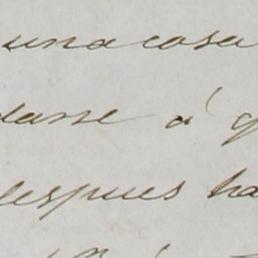 una cosa
darse á q
despues ha